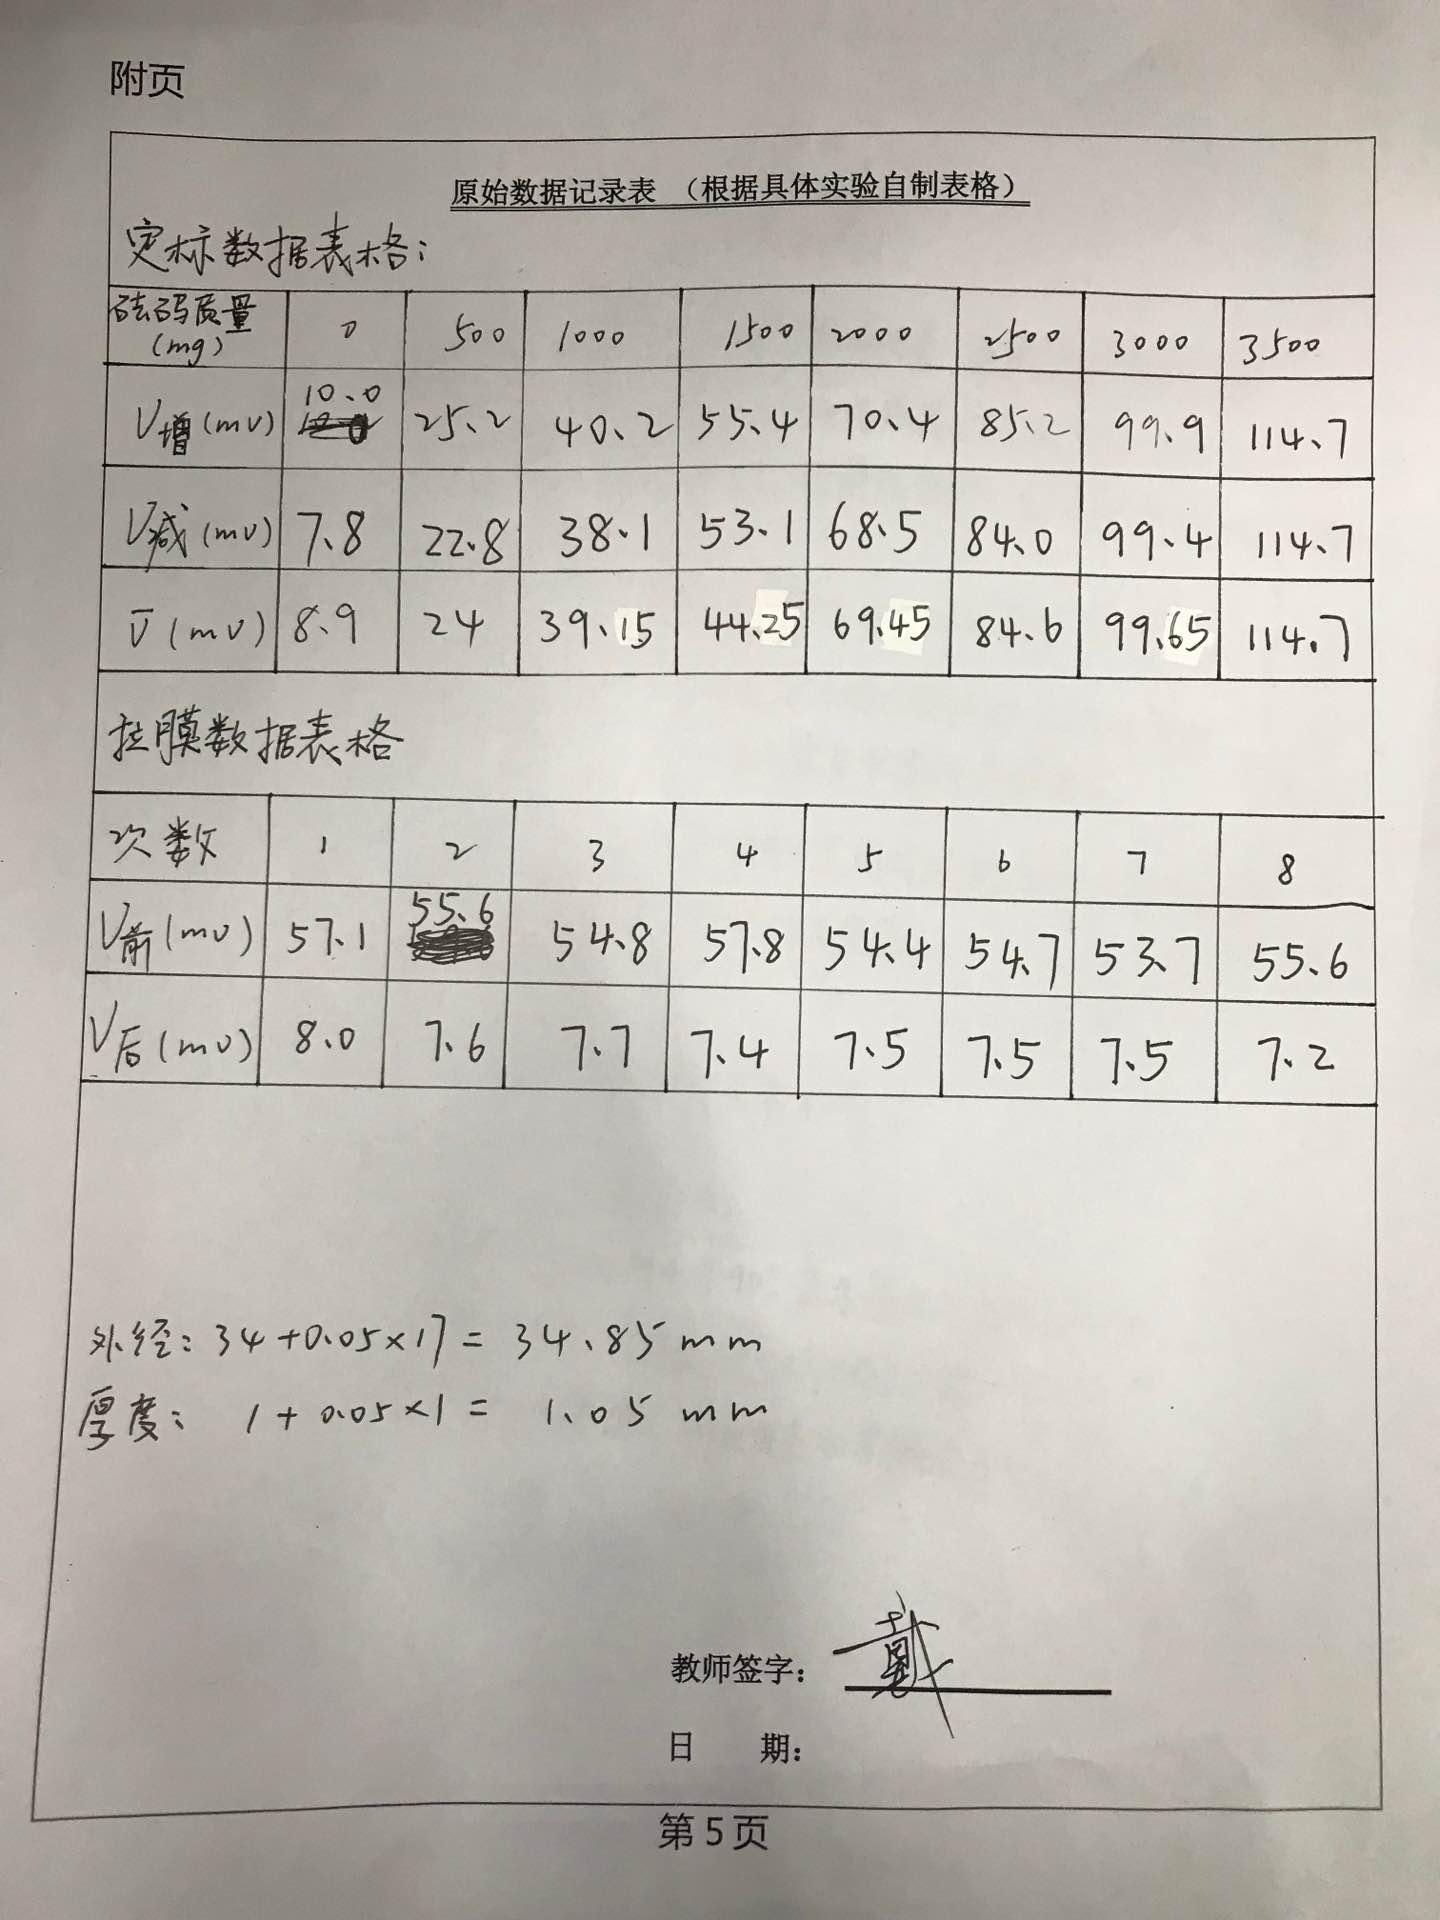 附页
原始数据记录表 （根据具体实验自制表格）
定标数据表格：
砝码质量(mg) 0 500 1000 1500 2000 2500 3000 3500
V增(mv) 10.0 25.2 40.2 55.4 70.4 85.2 99.9 114.7
V减(mv) 7.8 22.8 38.1 53.1 68.5 84.0 99.4 114.7
V̄(mv) 8.9 24 39.15 44.25 69.45 84.6 99.65 114.7
拉膜数据表格
次数 1 2 3 4 5 6 7 8
V前(mv) 57.1 55.6 54.8 57.8 54.4 54.7 53.7 55.6
V后(mv) 8.0 7.6 7.7 7.4 7.5 7.5 7.5 7.2
外径：34+0.05×17= 34.85mm
厚度： 1+0.05×1= 1.05 mm
教师签字： 戴
日 期：
第 5 页